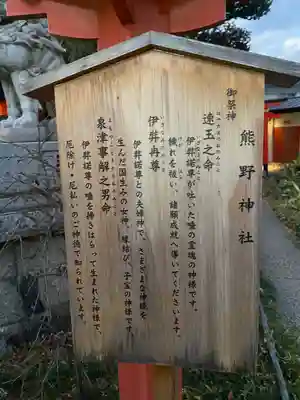 熊野神社
御祭神
速玉之命
はやたまのおのみこと
伊弉諾尊が吐いた唾の霊魂の神様です。
穢れを祓い、諸願成就へ導いてくださいます。
伊弉冉尊
いざなみのみこと
伊弉諾尊との夫婦神で、さまざまな神様を
生んだ国生みの女神。縁結び、子宝の神様です。
泉津事解之男命
伊弉諾尊の唾を掃きはらって生まれた神様で、
厄除け・厄払いのご神徳で知られています。